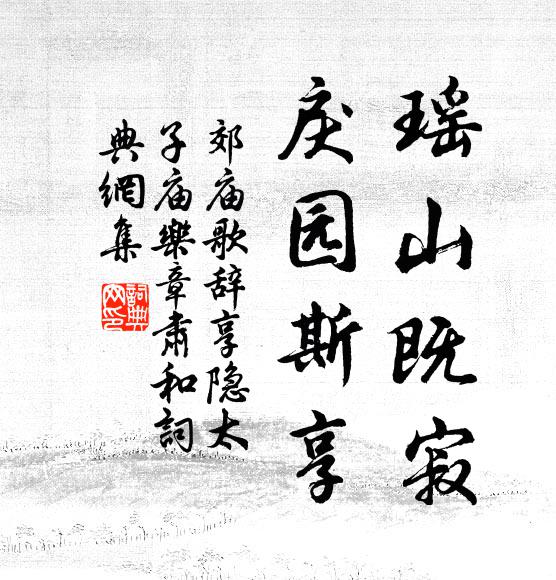 瑶山既寂
戾园斯享
郊庙歌辞享隐太
子庙樂章肃和詞
典網集
詞典网印